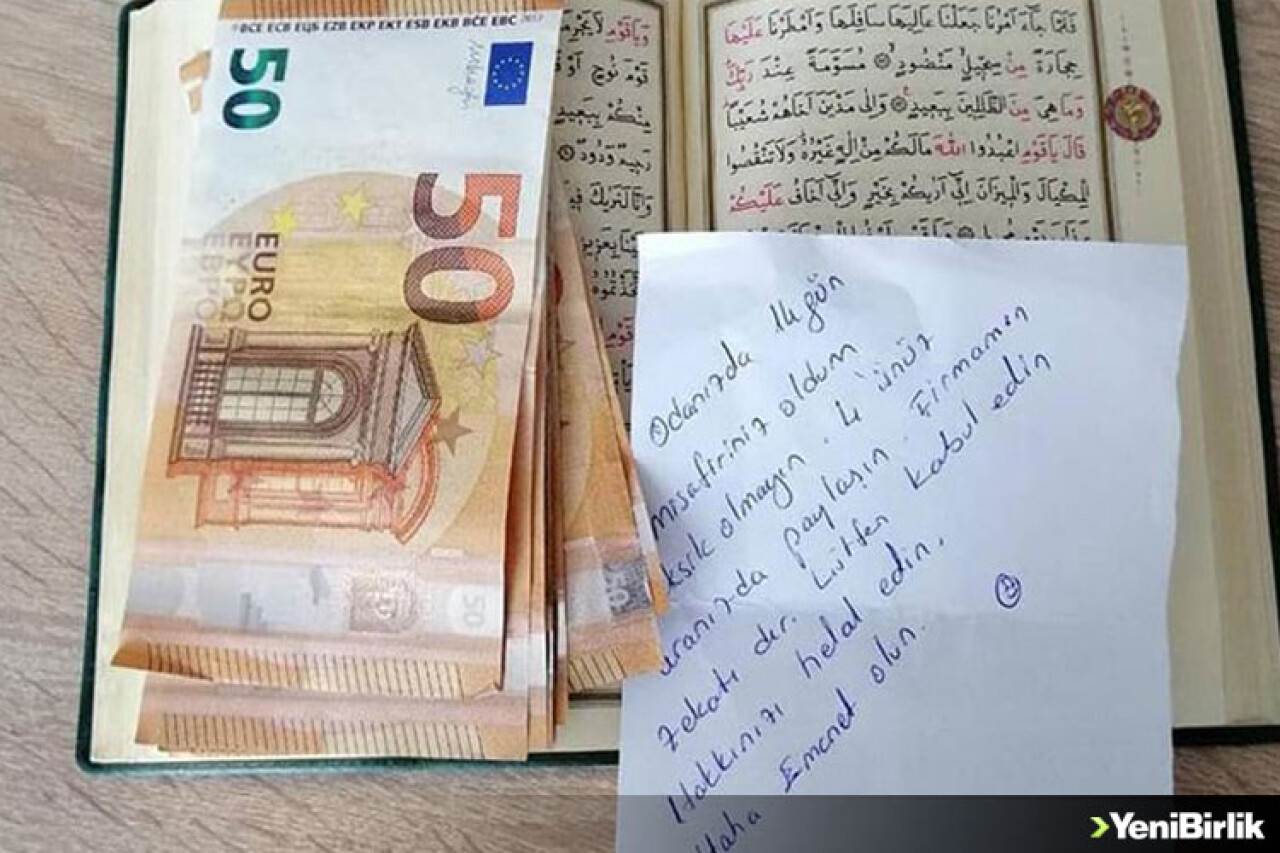 BCE ECB ЕЦБ EZB EKP EKT ESB EKB BĊE EBC 2017
50
50
EURO
ΕΥΡΩ
ЕВРО
50
وَيَاقَوْمِ لَا يَجْرِمَ
قَوْمَ نُوحٍ اَوْ قَ
مِنْكُمْ بِبَعِيدٍ
رَحِيمٌ وَدُودٌ
وَاِنَّا لَنَرٰيكَ فِي
فَلَمَّا جَٓاءَ اَمْرُنَا جَعَلْنَا عَالِيَهَا سَافِلَهَا وَاَمْطَرْنَا عَلَيْهَا
حِجَارَةً مِنْ سِجِّيلٍ مَنْضُودٍ مُسَوَّمَةً عِنْدَ رَبِّكَ
وَمَا هِيَ مِنَ الظَّالِمِينَ بِبَعِيدٍ وَاِلٰى مَدْيَنَ اَخَاهُمْ شُعَيْبًا
قَالَ يَاقَوْمِ اعْبُدُوا اللّٰهَ مَالَكُمْ مِنْ اِلٰهٍ غَيْرُهُ وَلَا تَنْقُصُوا
الْمِكْيَالَ وَالْمِيزَانَ اِنِّٓي اَرٰيكُمْ بِخَيْرٍ وَاِنِّٓي اَخَافُ عَلَيْكُمْ
Odanızda 14 gün
misafiriniz oldum
ksik olmayın 4 ünüz
uranızda paylaşın. Firmamın
zekatı dır. Lütfen kabul edin
Hakkınızı helal edin.
llaha Emanet olun.
YeniBirlik